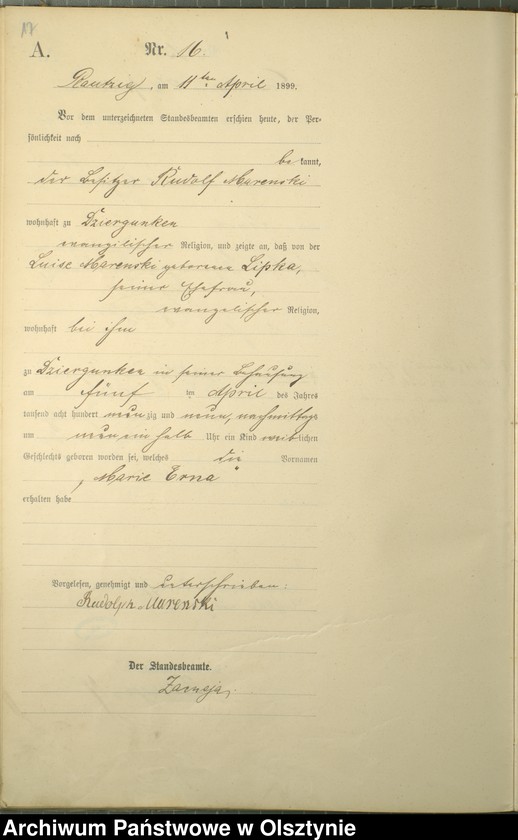 17
A.
Nr. 16.
am 11ten April 1899.
Vor dem unterzeichneten Standesbeamten erschien heute, der Per-
sönlichkeit nach
be kannt,
der Besitzer Rudolf Marenski
wohnhaft zu Dziergunken
evangelischer Religion, und zeigte an, daß von der
Luise Marenski geborene Lipka,
seiner Ehefrau,
evangelischer Religion,
wohnhaft bei ihm
zu Dziergunken in seiner Behausung
am fünf ten April des Jahres
tausend acht hundert neun zig und neun, nachmittags
um neun ein halb Uhr ein Kind weib lichen
Geschlechts geboren worden sei, welches die Vornamen
„Marie Erna“
erhalten habe
Vorgelesen, genehmigt und unterschrieben:
Rudolph Marenski
Der Standesbeamte.
Archiwum Państwowe w Olsztynie